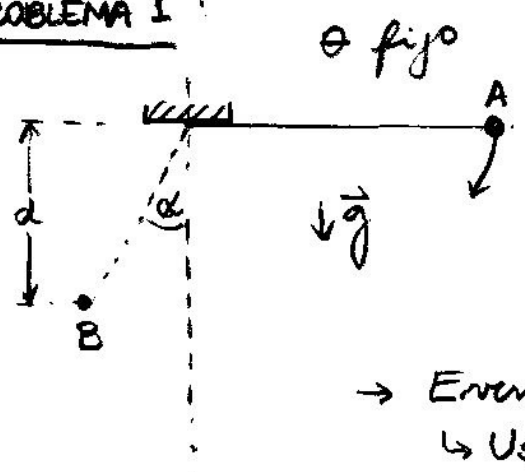 ROBLEMA I
θ fijo
A
α
d
g
B
→ Ener
↳ Us